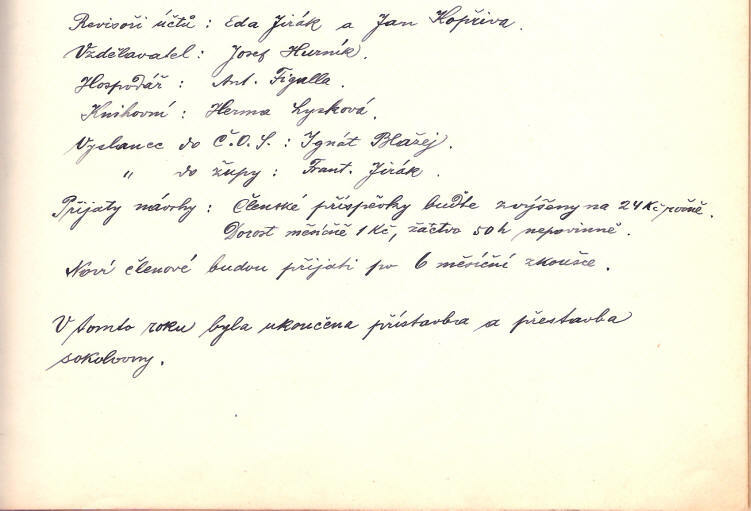 Revisoři účtů : Eda Jirák a Jan Kopřiva.
Vzdělavatel : Josef Hurník.
Hospodář : Ant. Figalla.
Knihovní : Herma Lysková.
Vyslanec do Č.O.S. : Ignát Blažej.
" do župy : Frant. Jirák.
Přijaty návrhy : Členské příspěvky buďte zvýšeny na 24 Kč ročně.
Dorost měsíčně 1 Kč, žáctvo 50 h nepovinně.
Noví členové budou přijati po 6 měsíční zkoušce.
V tomto roku byla ukončena přístavba a přestavba
sokolovny.